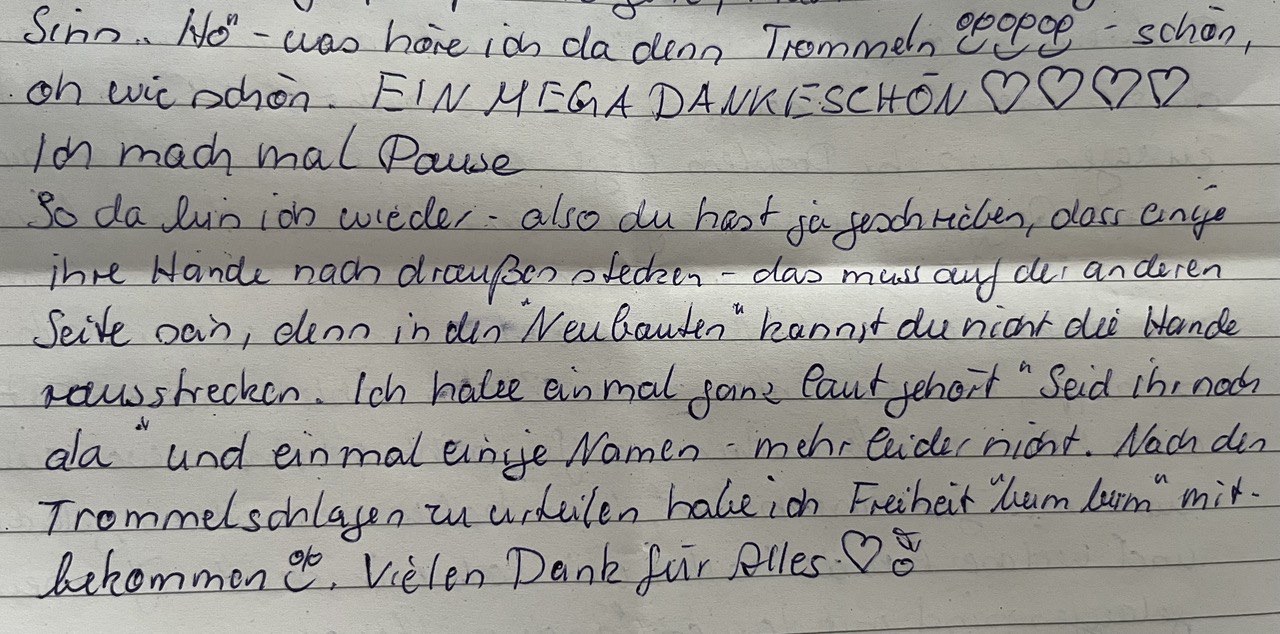 Sinn „Hö" - was höre ich da denn Trommeln - schön,
oh wie schön. EIN MEGA DANKESCHÖN ♡♡♡♡
Ich mach mal Pause
So da bin ich wieder - also du hast ja geschrieben, dass einige
ihre Hände nach draußen stecken - das muss auf der anderen
Seite sein, denn in den "Neubauten" kannst du nicht die Hände
rausstrecken. Ich habe einmal ganz laut gehört "Seid ihr noch
da" und einmal einige Namen - mehr leider nicht. Nach den
Trommelschlägen zu urteilen habe ich Freiheit "bum bum" mit-
bekommen. Vielen Dank für Alles. ♡